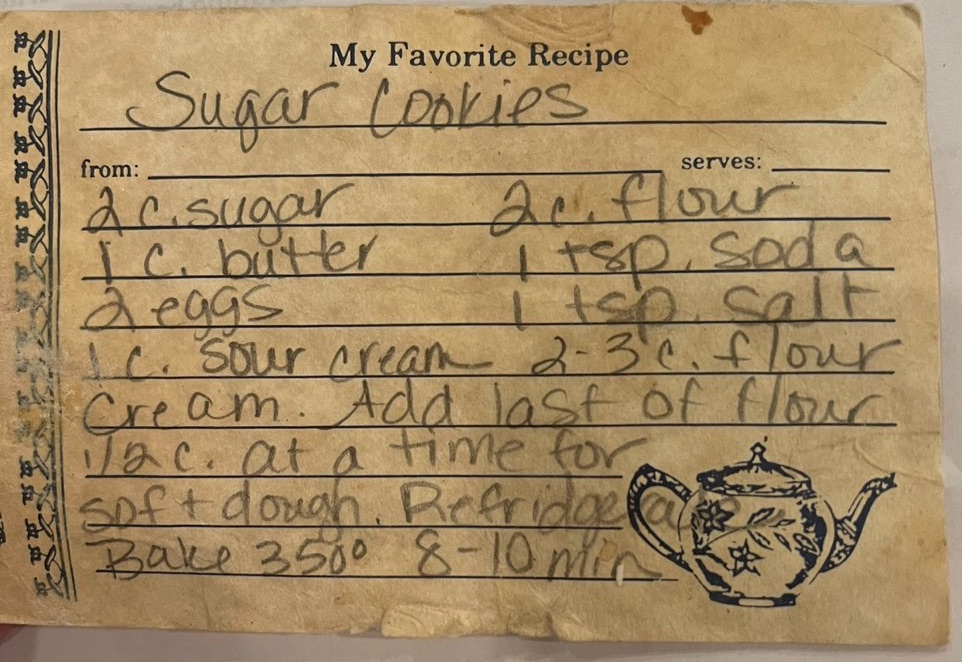 My Favorite Recipe
Sugar Cookies
from: serves:
2 c. sugar 2 c. flour
1 c. butter 1 tsp. soda
2 eggs 1 tsp. salt
1 c. sour cream 2-3 c. flour
Cream. Add last of flour
1/2 c. at a time for
soft dough. Refridgerate
Bake 350° 8-10 min